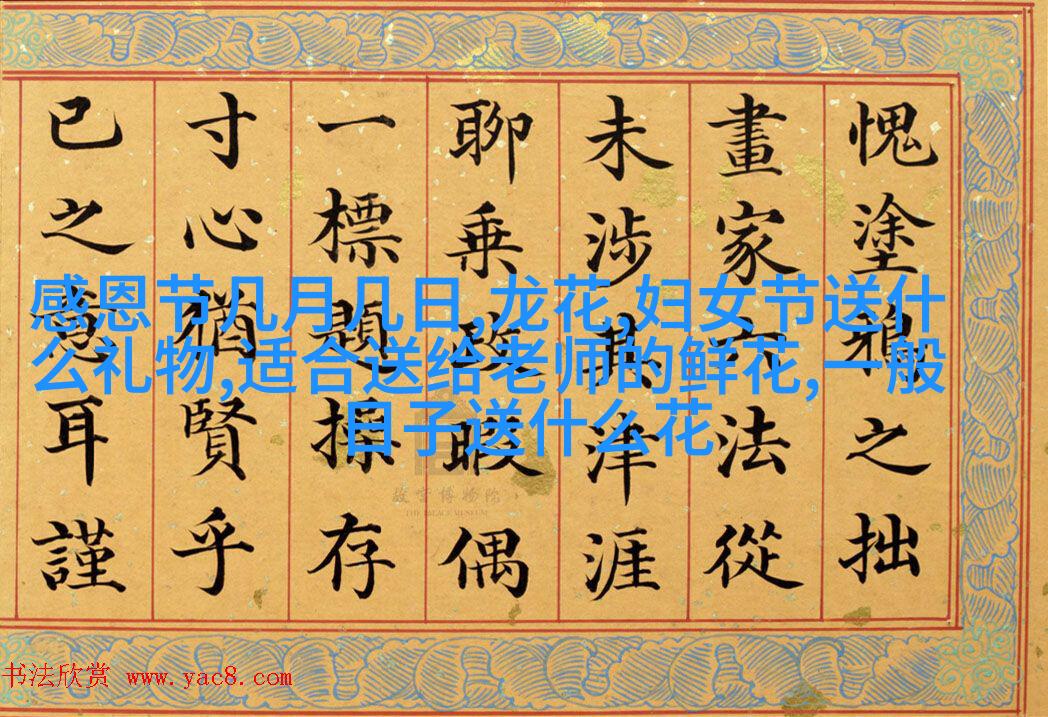 愧塗鴉之拙
畫家六法從
未涉其津涯
聊乘政暇偶
一標題操存
寸心猶賢乎
已之意耳謹
感恩节几月几日,龙花,妇女节送什
么礼物,适合送给老师的鲜花,一般
日子送什么花
故宫博物院
THE PALACE MUSEUM
书法欣赏 www.yac8.com